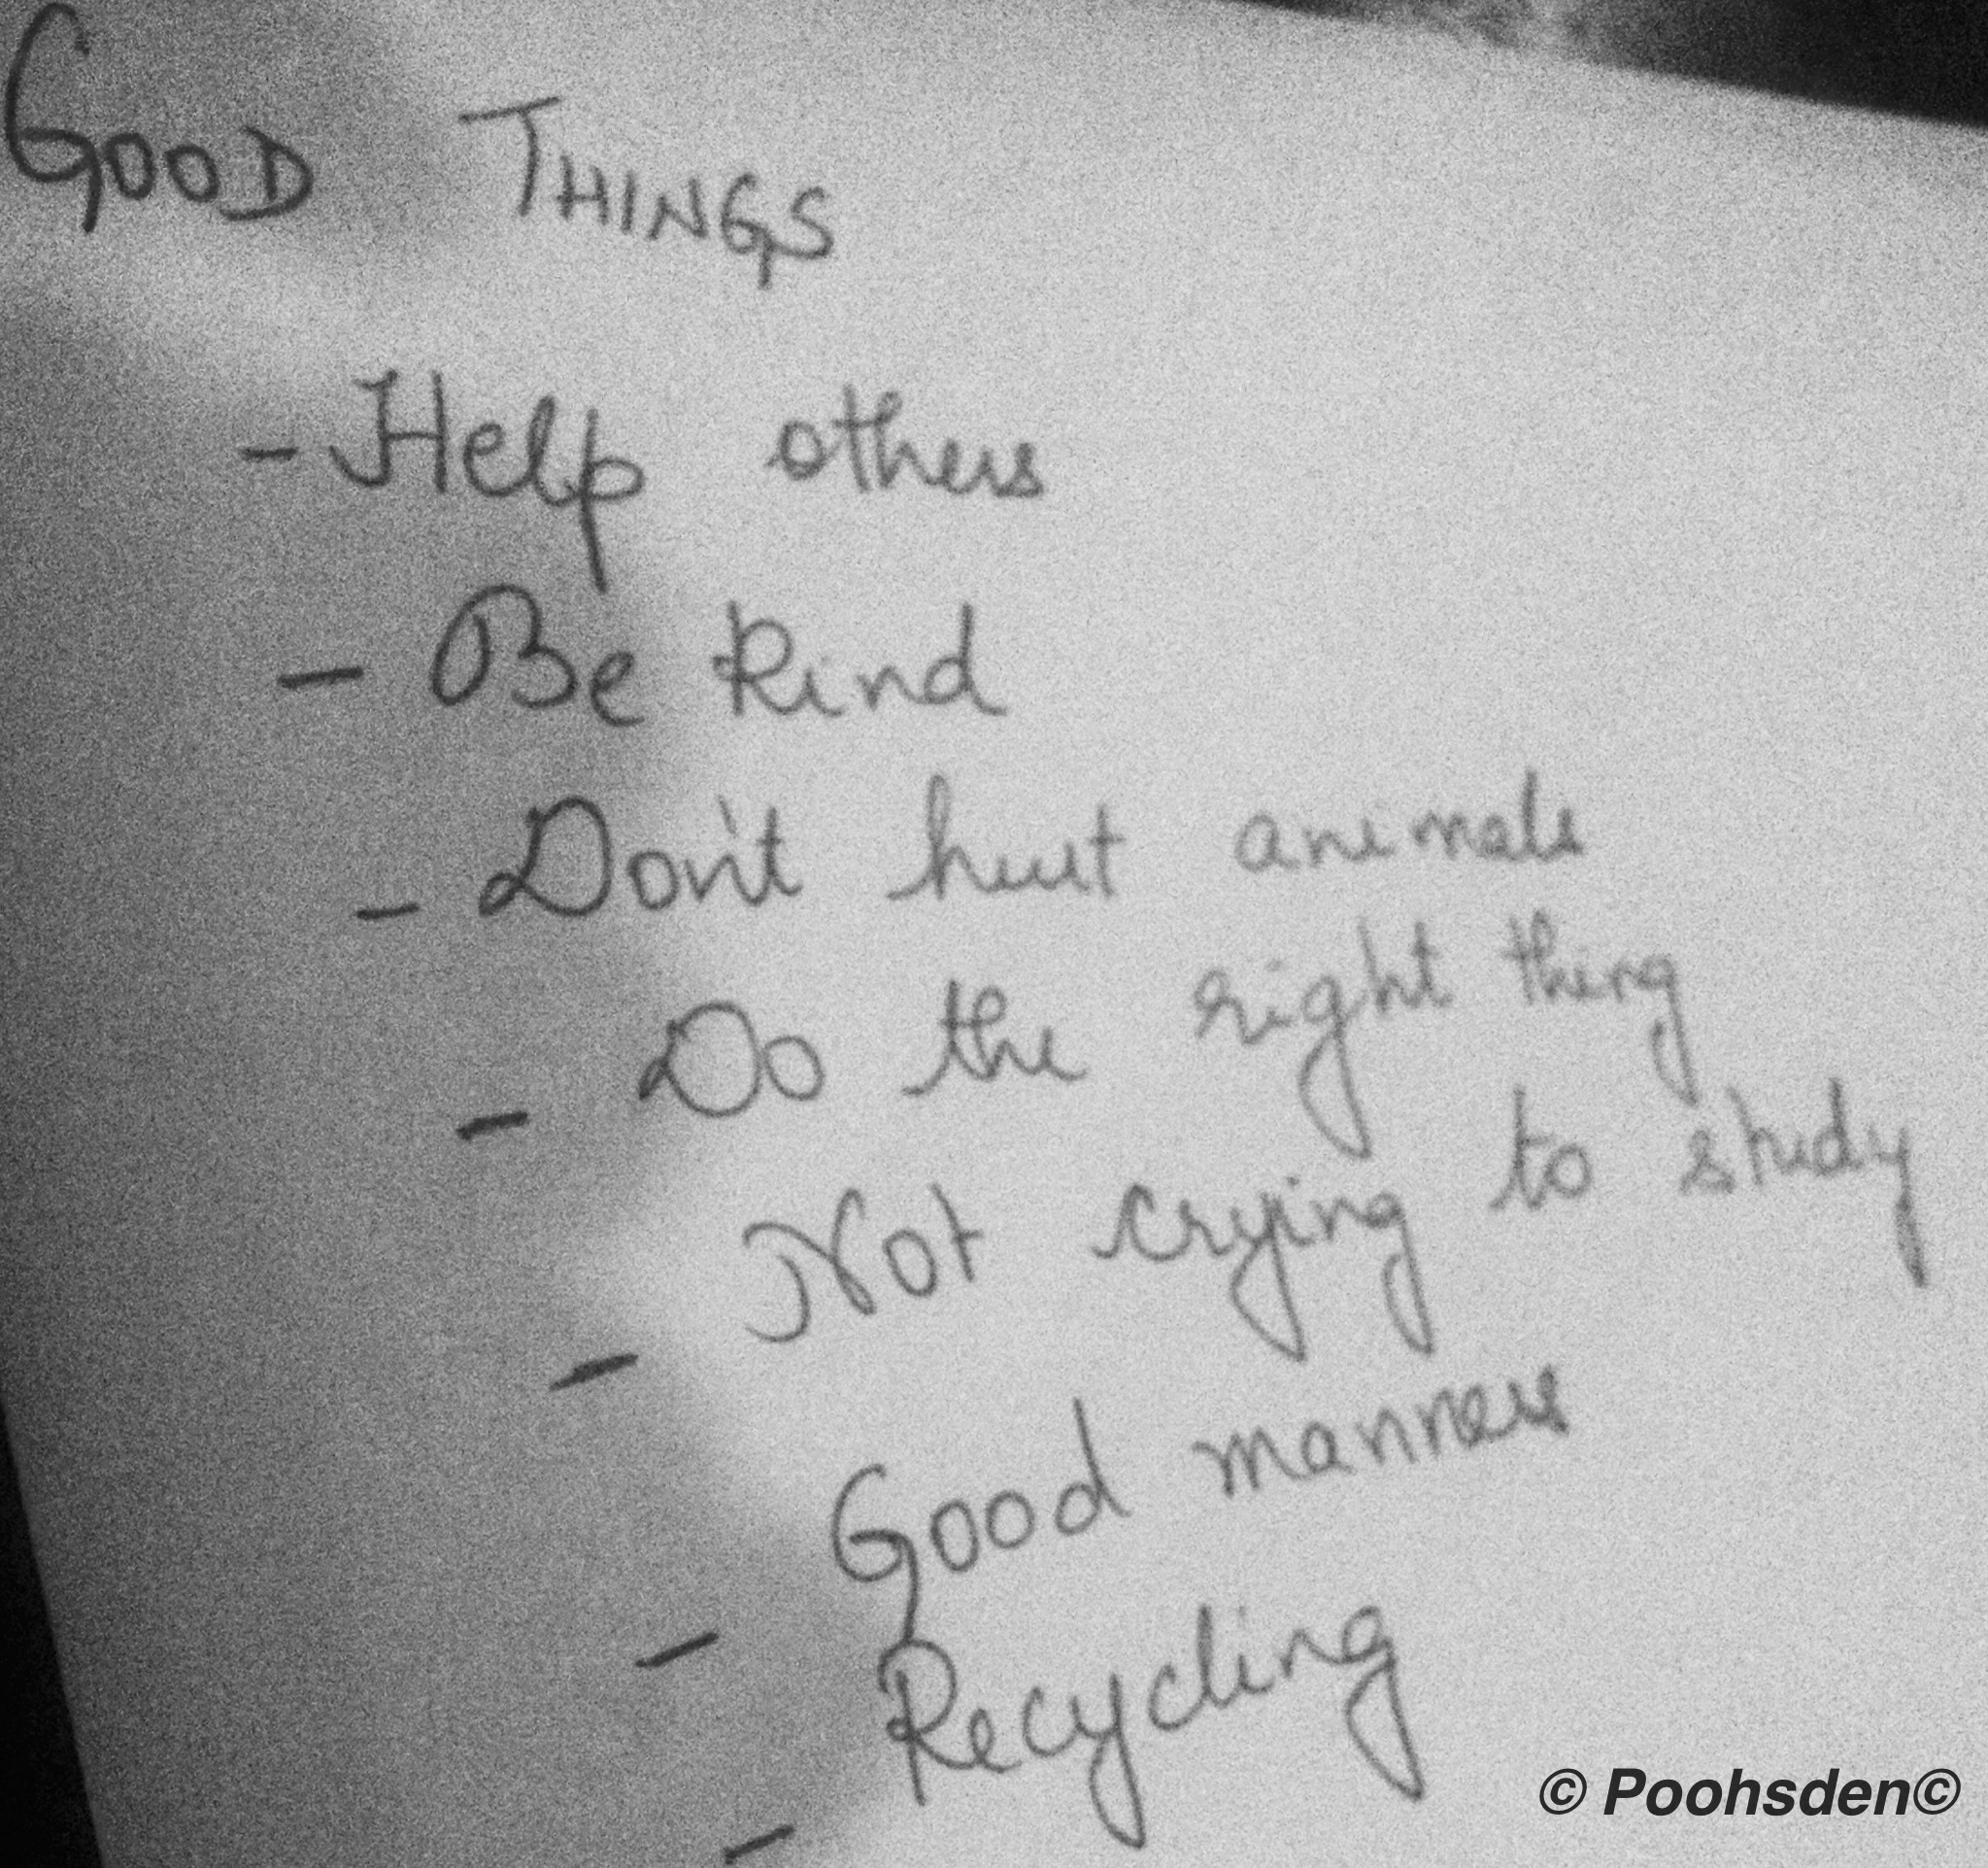 GOOD THINGS
- Help others
- Be kind
- Don't hurt animals
- Do the right thing
- Not crying to study
- Good manners
- Recycling
© Poohsden©